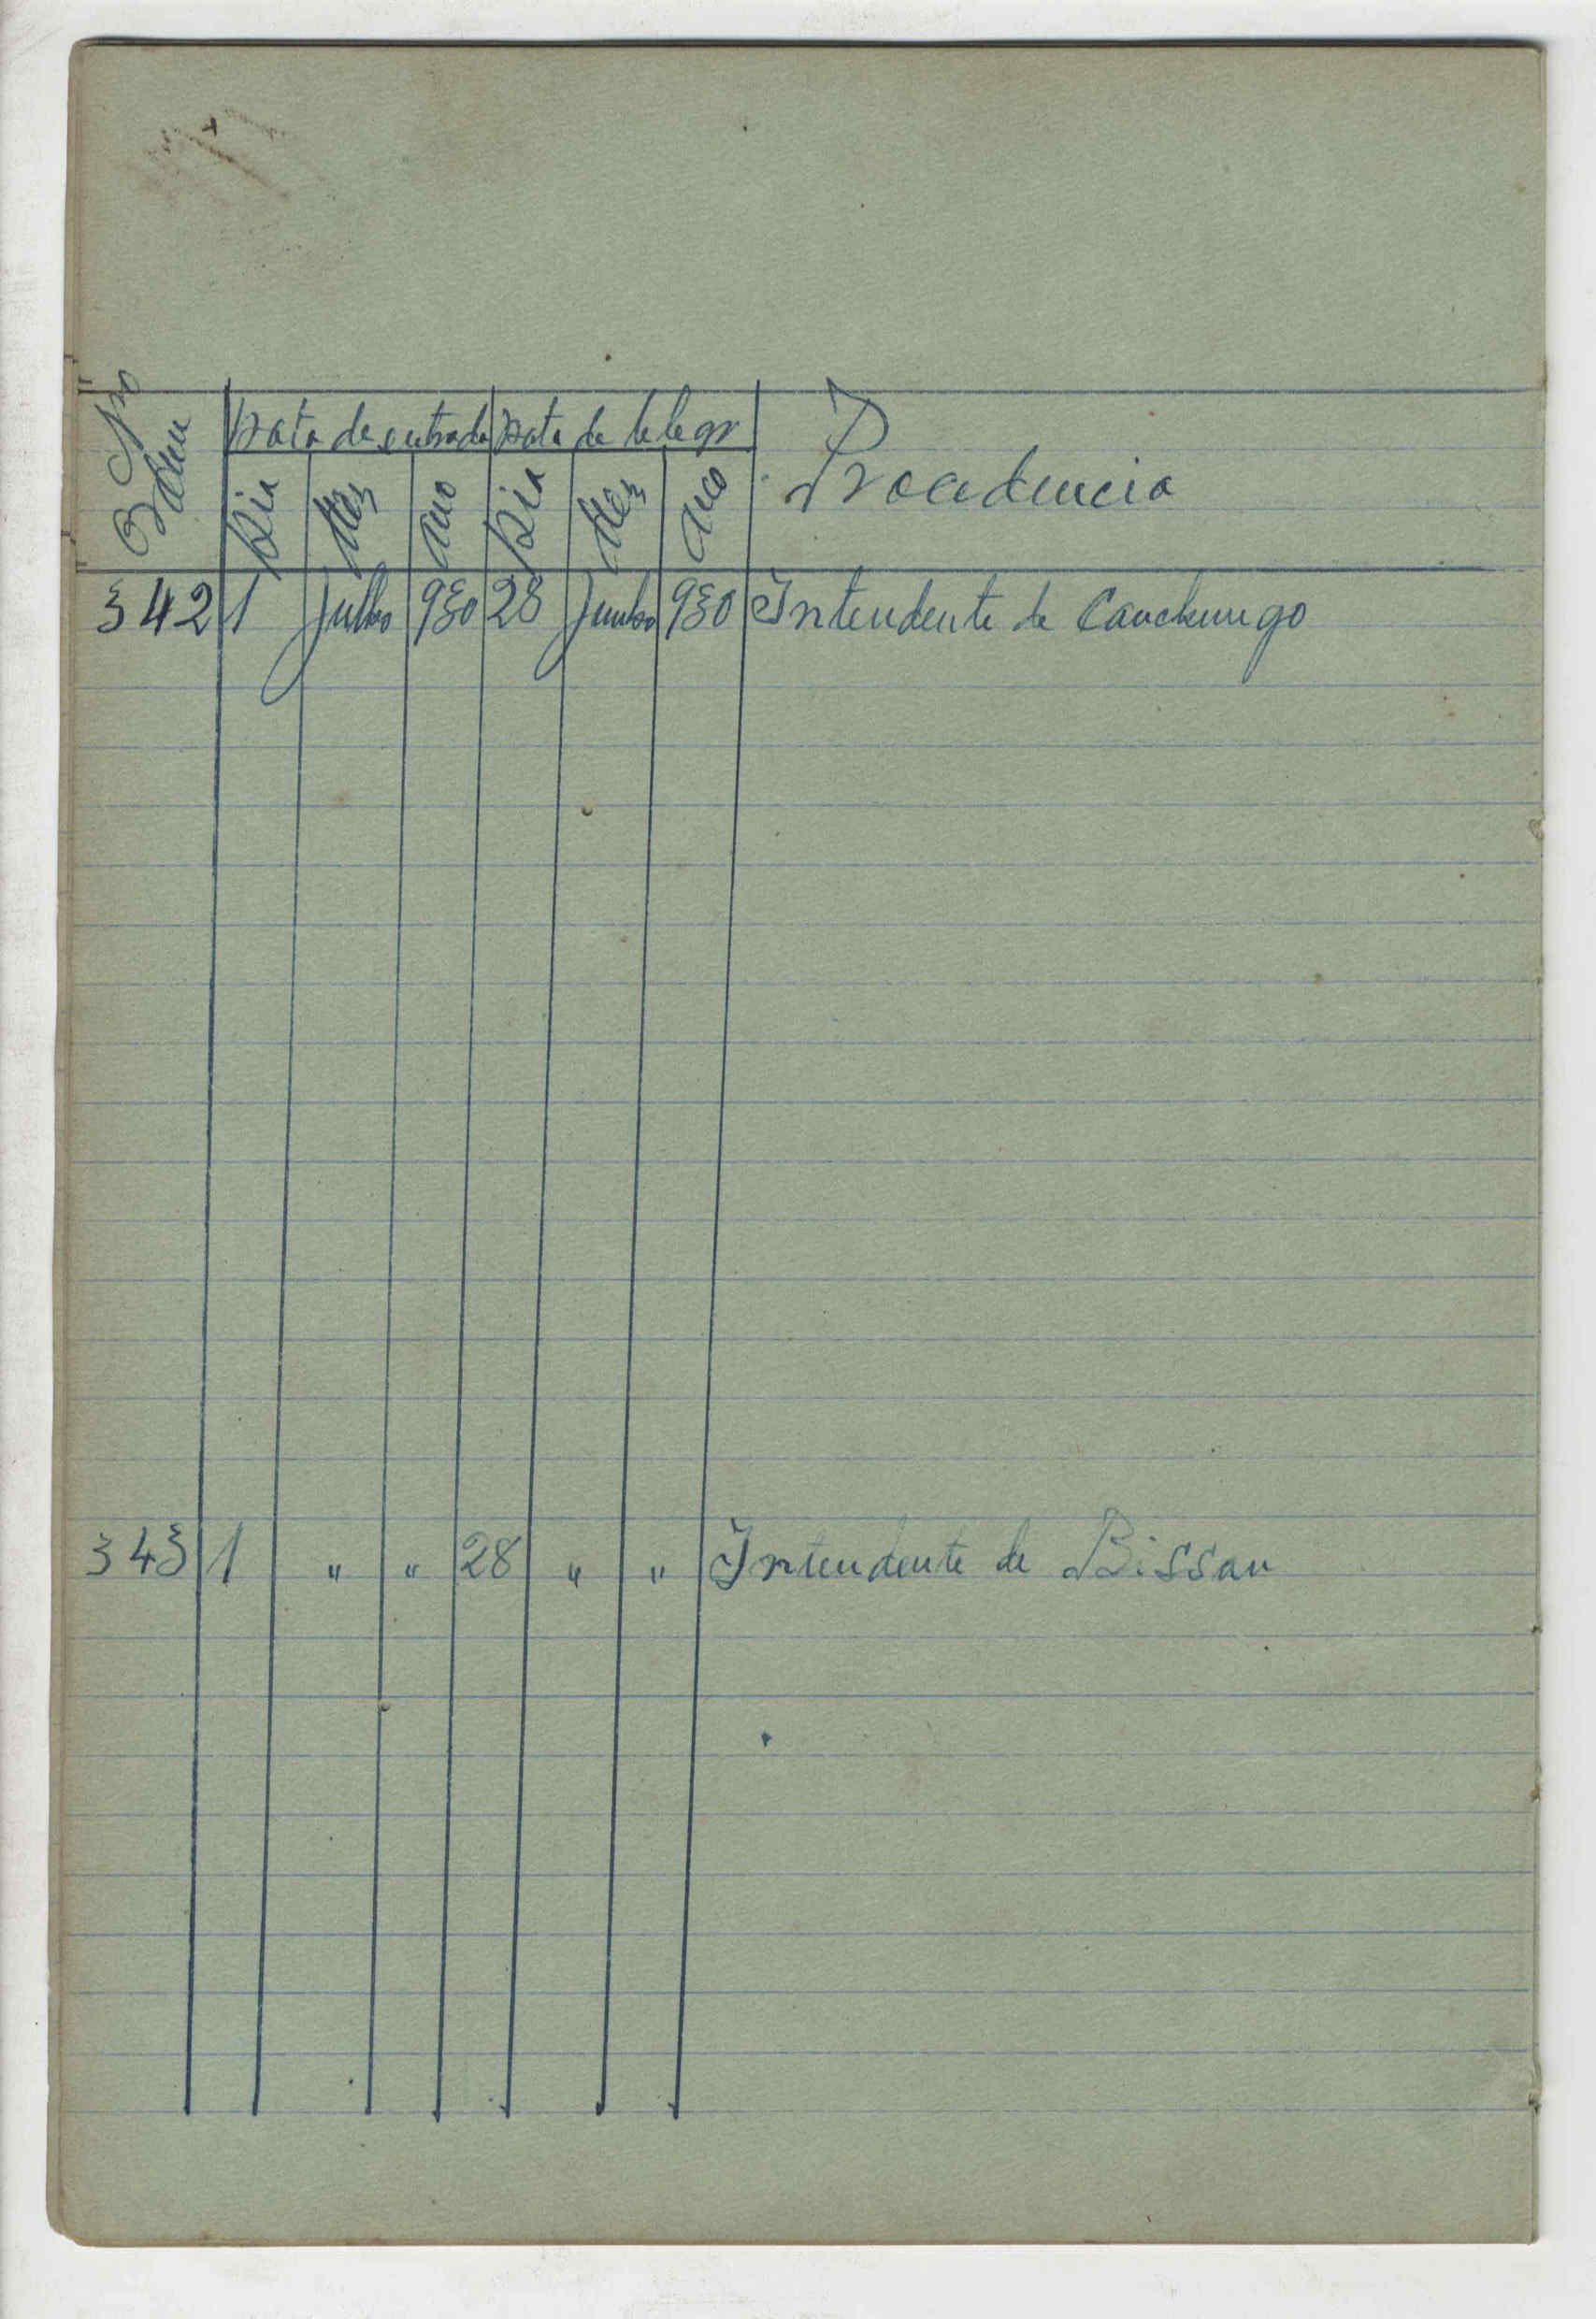 Nro Ordem Data de entrada Data de telegr Procedencia
Dia Mêz Ano Dia Mêz Ano
342 1 Julho 930 28 Junho 930 Intendente de Canchungo
343 1 " " 28 " " Intendente de Bissau